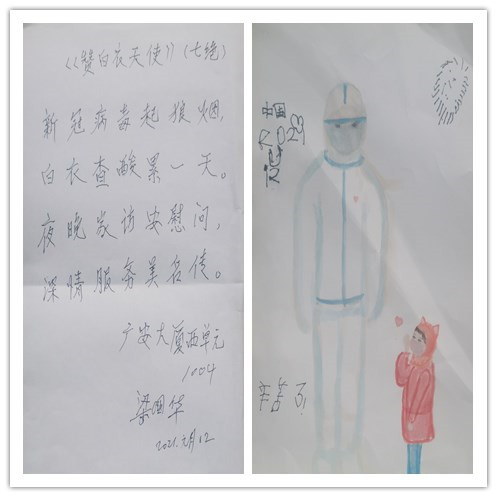 《赞白衣天使》（七绝）
新冠病毒起狼烟，
白衣查酸累一天。
夜晚家访安慰问，
深情服务美名传。
广安大厦西单元
1004
梁国华
2021.元月12
中国
辛苦了！